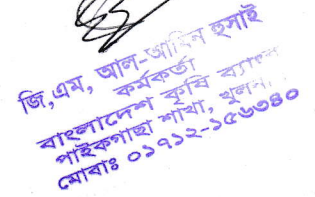 জি,এম, আল-আমিন হুসাই
কর্মকর্তা
বাংলাদেশ কৃষি ব্যাংক
পাইকগাছা শাখা, খুলনা
মোবাঃ ০১৭১২-১৫৬৩৪০